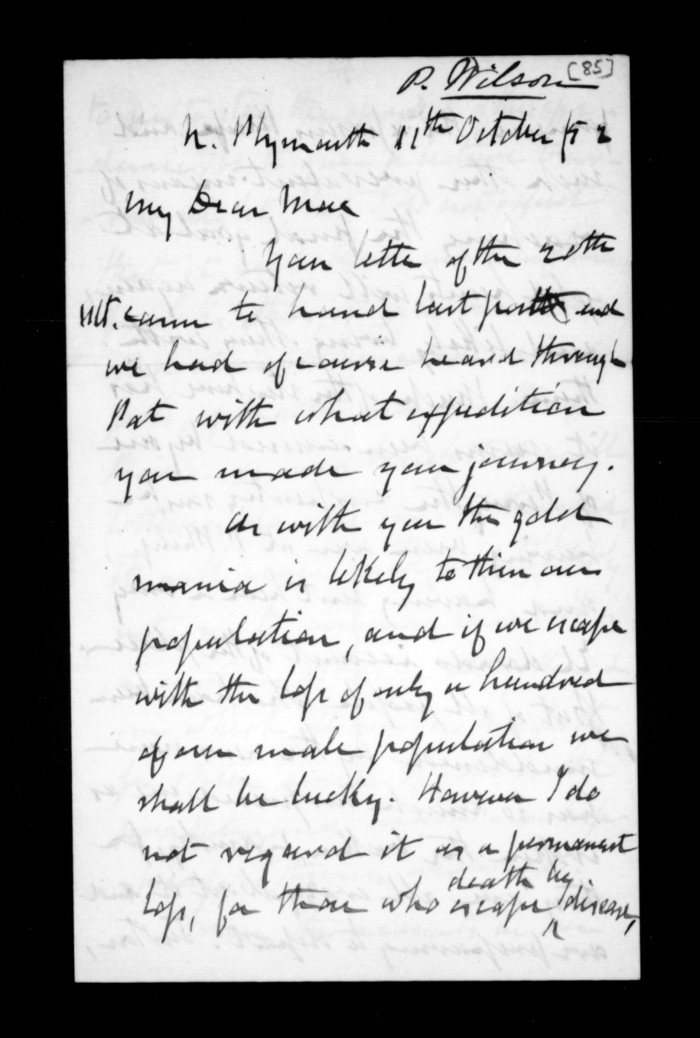 P. Wilson [85]
N. Plymouth 11th October /52
My Dear Mac
Your letter of the 20th
Ult. came to hand last post and
we had of course heard through
Pat with what expedition
you made your journey.
As with you the gold
mania is likely to thin our
population, and if we escape
with the loss of only a hundred
of our male population we
shall be lucky. However I do
not regard it as a permanent
loss, for those who escape death by disease,